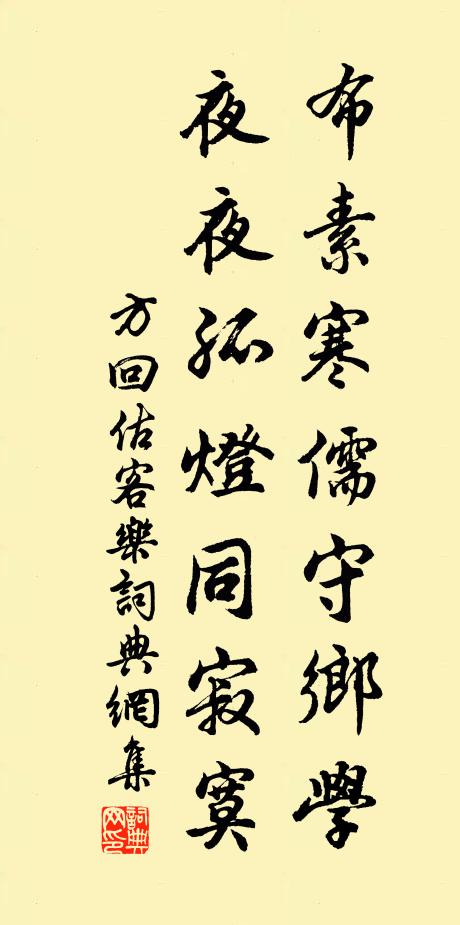 布素寒儒守鄉學
夜夜孤燈同寂寞
方回估客樂詞典網集
詞典网印